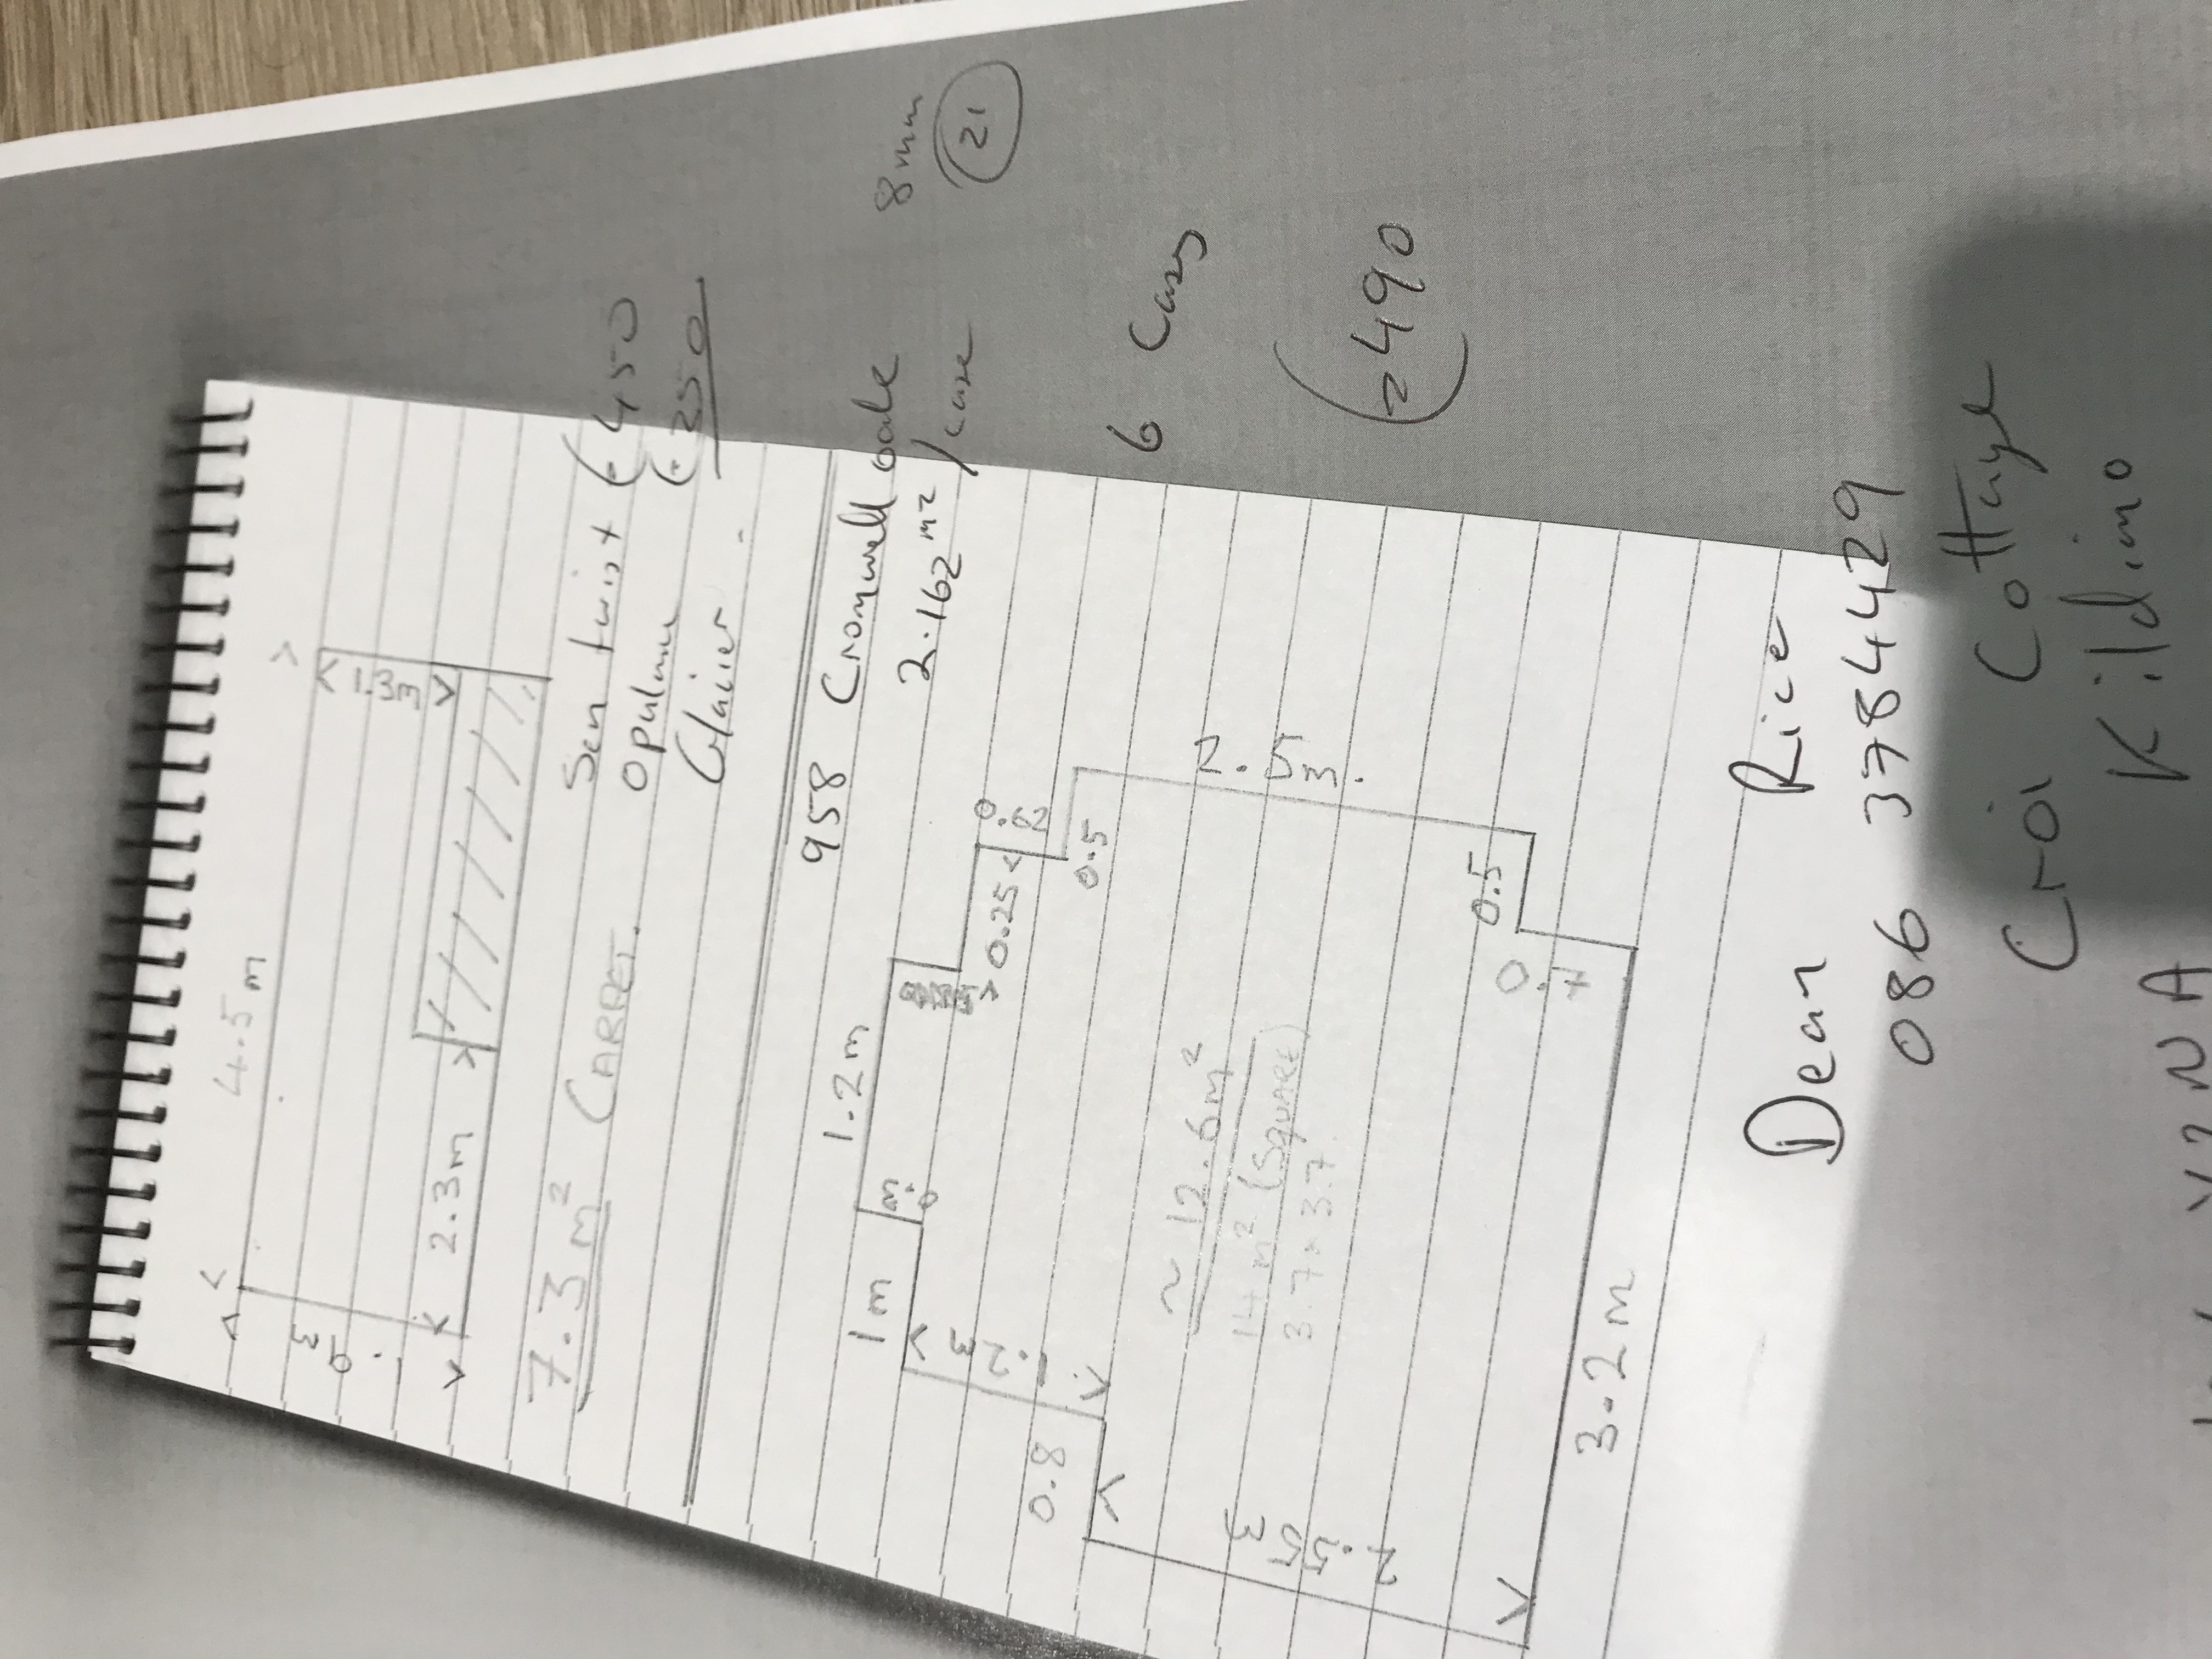 4.5m
1.3m
1.9m
2.3m
7.3m² CARPET.
Sen twist €450
Opulence €250
Glacier
958 Cromwell oak
8mm
21
2.162 m² /case
6 Cases
€490
1.2m
1m
0.62
0.25
0.5
1.2m
0.8
2.5m.
~ 12.6m²
14m² (SQUARE)
3.7 × 3.7
2.5m
0.5
0.7
3.2m
Dean Rice
086 3784429
Croi Cottage
Kildimo